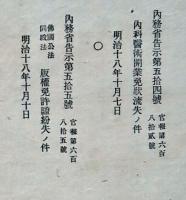 內務省告示第五拾四號 官報第六百八拾貳號
內科醫術開業免狀流失ノ件
明治十八年十月七日
○
內務省告示第五拾五號 官報第六百八拾五號
佛國公法
同政法 版權免許證紛失ノ件
明治十八年十月十日